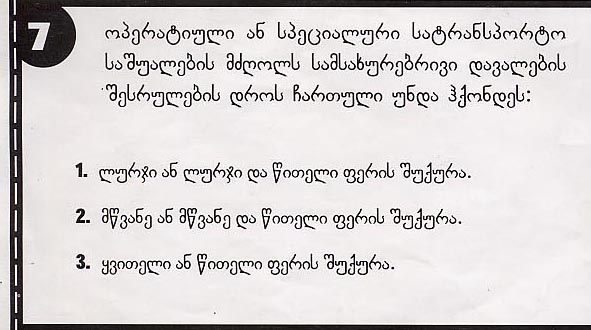 7
ოპერატიული ან სპეციალური სატრანსპორტო
საშუალების მძღოლს სამსახურებრივი დავალების
შესრულების დროს ჩართული უნდა ჰქონდეს:
1. ლურჯი ან ლურჯი და წითელი ფერის შუქურა.
2. მწვანე ან მწვანე და წითელი ფერის შუქურა.
3. ყვითელი ან წითელი ფერის შუქურა.